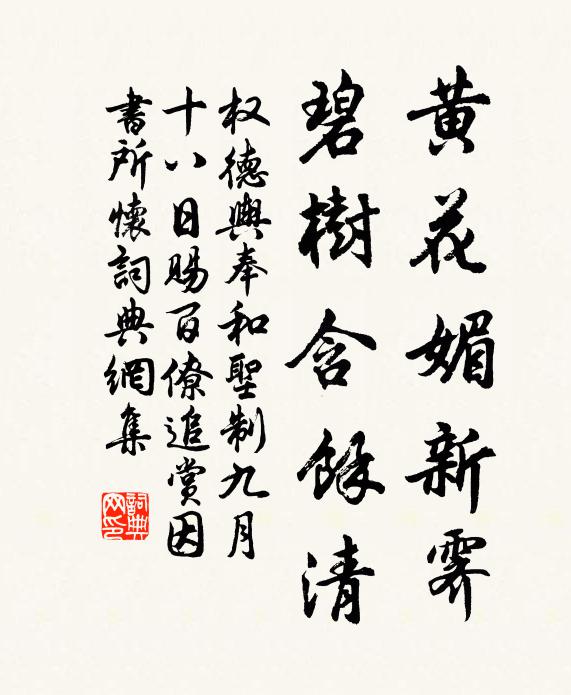 黄花媚新霽
碧樹含餘清
权德輿奉和聖制九月
十八日賜百僚追賞因
書所懷詞典網集
詞典网印